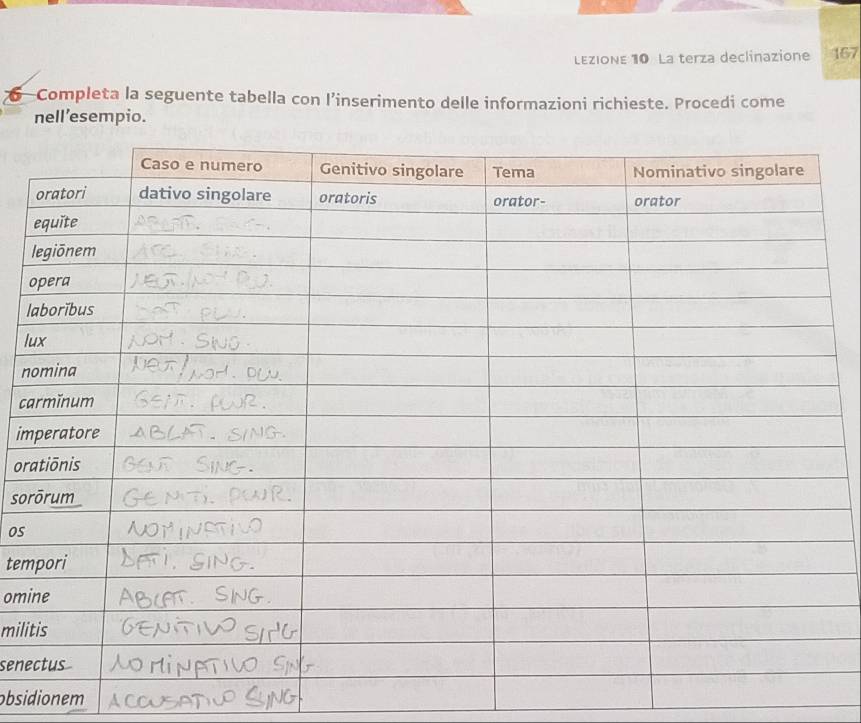 LEZIONE 10 La terza declinazione 167
6 Completa la seguente tabella con l'inserimento delle informazioni richieste. Procedi come
nell'esempio.
Caso e numero Genitivo singolare Tema Nominativo singolare
oratori dativo singolare oratoris orator- orator
equĭte ABLAT. SING.
legiōnem ACC. SING.
opera NEUT./NOM PLU.
laborĭbus DAT. PLU.
lux NOM. SING.
nomina NEUT/NOM. PLU.
carmĭnum GENIT. PLUR.
imperatore ABLAT. SING.
oratiōnis GENIT SING.
sorōrum GENITI. PLUR.
os NOMINATIVO
tempori DATI. SING.
omine ABLAT. SING.
militis GENITIVO SING
senectus NOMINATIVO SING
obsidionem ACCUSATIVO SING.